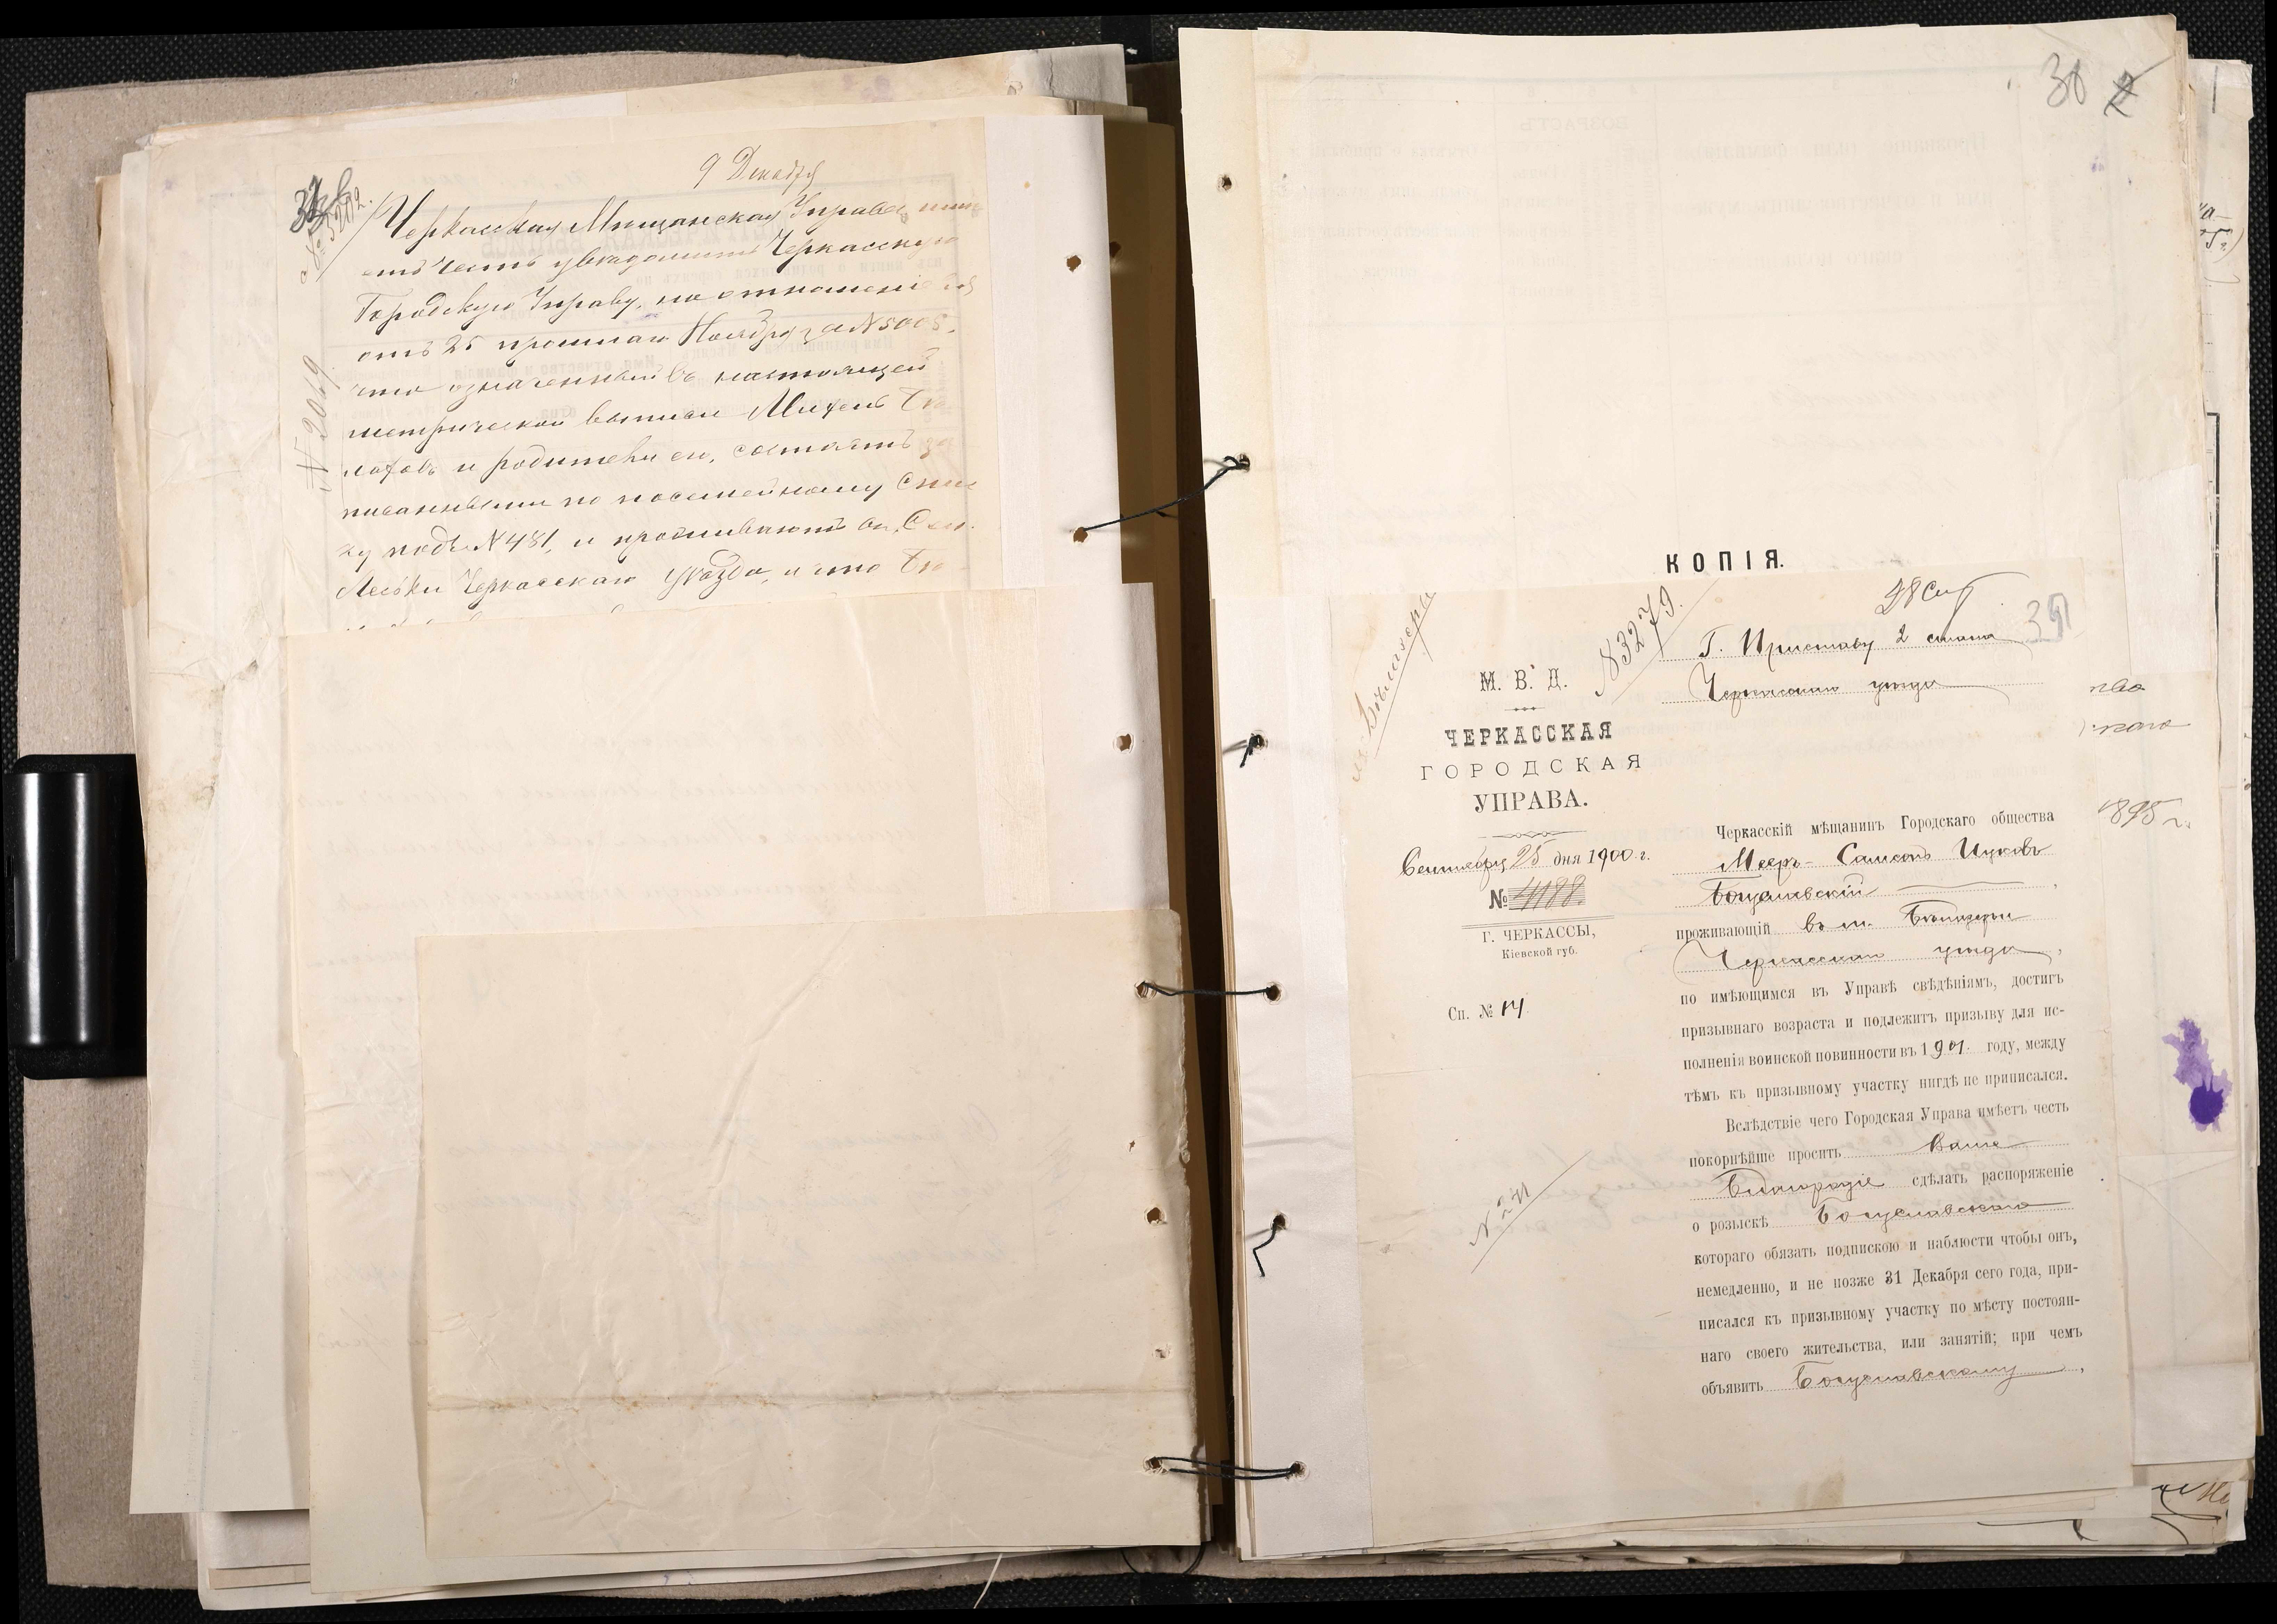 9 Декабря
№ 5202.
№ 2019
Черкасская Мещанская Управа, имѣ-
етъ честь увѣдомить Черкасскую
Городскую Управу, на отношеніе ея
отъ 25 прошлаго Ноября за № 5005,
что означенный въ настоящей
метрической выписи
и родители его, состоятъ за
писанными по посемейному Спис
ку подъ № 481, и проживаютъ въ с.
Леськи Черкасскаго уѣзда, и что
30
КОПІЯ.
28 Сен
39
№ 3279.
Г. Приставу 2 стана
Черкасскаго уѣзда
М. В. Д.
ЧЕРКАССКАЯ
ГОРОДСКАЯ
УПРАВА.
Сентября 25 дня 1900 г.
№ 4188.
Г. ЧЕРКАССЫ,
Кіевской губ.
Сп. № 14
№ 241
Черкасскій мѣщанинъ Городскаго общества
Мееръ-Самсонъ Ицковъ
Богуславскій,
проживающій въ м.
Черкасскаго уѣзда,
по имѣющимся въ Управѣ свѣдѣніямъ, достигъ
призывнаго возраста и подлежитъ призыву для ис-
полненія воинской повинности въ 1901 году, между
тѣмъ къ призывному участку нигдѣ не приписался.
Вслѣдствіе чего Городская Управа имѣетъ честь
покорнѣйше просить Ваше
Благородіе сдѣлать распоряженіе
о розыскѣ Богуславскаго
котораго обязать подпискою и наблюсти чтобы онъ,
немедленно, и не позже 31 Декабря сего года, при-
писался къ призывному участку по мѣсту постоян-
наго своего жительства, или занятій; при чемъ
объявить Богуславскому,
1895 г.